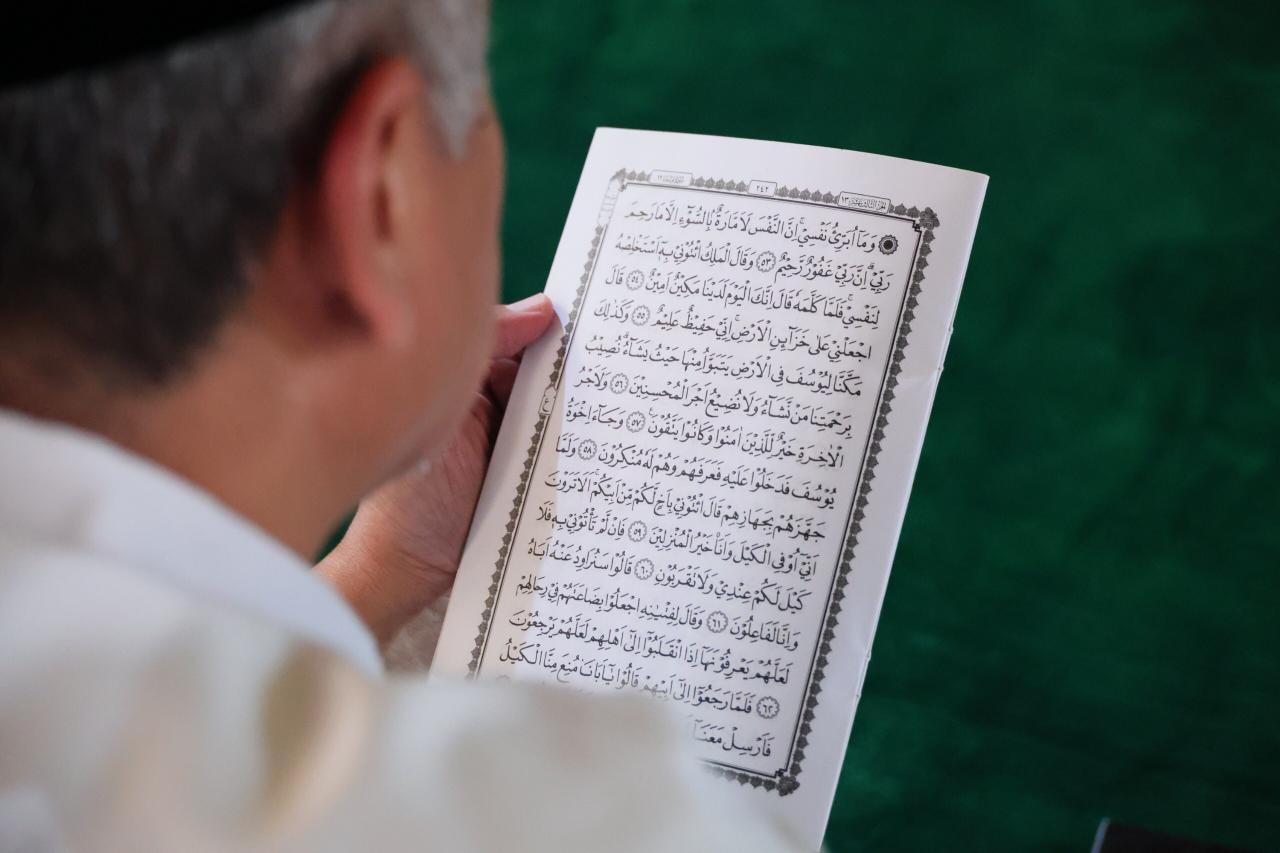 الجزء الثالث عشر ١٣
٢٤٢
وَمَا أُبَرِّئُ نَفْسِيْ ۚ اِنَّ النَّفْسَ لَاَمَّارَةٌ ۢ بِالسُّوْۤءِ اِلَّا مَا رَحِمَ
رَبِّيْ ۗ اِنَّ رَبِّيْ غَفُوْرٌ رَّحِيْمٌ ٥٣ وَقَالَ الْمَلِكُ ائْتُوْنِيْ بِهٖٓ اَسْتَخْلِصْهُ
لِنَفْسِيْ ۚ فَلَمَّا كَلَّمَهٗ قَالَ اِنَّكَ الْيَوْمَ لَدَيْنَا مَكِيْنٌ اَمِيْنٌ ٥٤ قَالَ
اجْعَلْنِيْ عَلٰى خَزَآئِنِ الْاَرْضِ ۚ اِنِّيْ حَفِيْظٌ عَلِيْمٌ ٥٥ وَكَذٰلِكَ
مَكَّنَّا لِيُوْسُفَ فِى الْاَرْضِ يَتَبَوَّاُ مِنْهَا حَيْثُ يَشَاۤءُ ۗ نُصِيْبُ
بِرَحْمَتِنَا مَنْ نَّشَاۤءُ وَلَا نُضِيْعُ اَجْرَ الْمُحْسِنِيْنَ ٥٦ وَلَاَجْرُ
الْاٰخِرَةِ خَيْرٌ لِّلَّذِيْنَ اٰمَنُوْا وَكَانُوْا يَتَّقُوْنَ ٥٧ وَجَاۤءَ اِخْوَةُ
يُوْسُفَ فَدَخَلُوْا عَلَيْهِ فَعَرَفَهُمْ وَهُمْ لَهٗ مُنْكِرُوْنَ ٥٨ وَلَمَّا
جَهَّزَهُمْ بِجَهَازِهِمْ قَالَ ائْتُوْنِيْ بِاَخٍ لَّكُمْ مِّنْ اَبِيْكُمْ ۚ اَلَا تَرَوْنَ
اَنِّيْٓ اُوْفِى الْكَيْلَ وَاَنَا۠ خَيْرُ الْمُنْزِلِيْنَ ٥٩ فَاِنْ لَّمْ تَأْتُوْنِيْ بِهٖ فَلَا
كَيْلَ لَكُمْ عِنْدِيْ وَلَا تَقْرَبُوْنِ ٦٠ قَالُوْا سَنُرَاوِدُ عَنْهُ اَبَاهُ
وَاِنَّا لَفَاعِلُوْنَ ٦١ وَقَالَ لِفِتْيٰنِهِ اجْعَلُوْا بِضَاعَتَهُمْ فِيْ رِحَالِهِمْ
لَعَلَّهُمْ يَعْرِفُوْنَهَآ اِذَا انْقَلَبُوْٓا اِلٰٓى اَهْلِهِمْ لَعَلَّهُمْ يَرْجِعُوْنَ
٦٢ فَلَمَّا رَجَعُوْٓا اِلٰٓى اَبِيْهِمْ قَالُوْا يٰٓاَبَانَا مُنِعَ مِنَّا الْكَيْلُ
فَاَرْسِلْ مَعَنَآ
ع